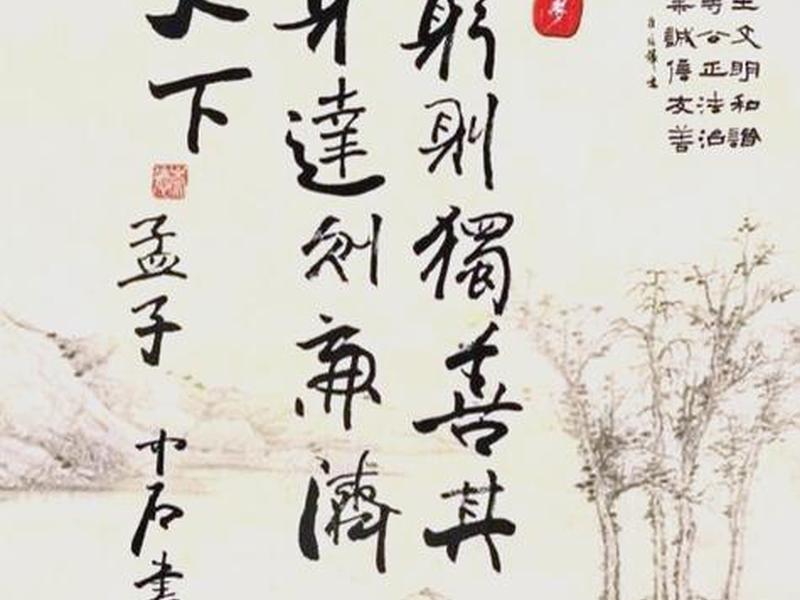 主文明和諧
等公正法治
業誠信友善
夢
窮則獨善其
身達則兼濟
天下
孟子 中石書